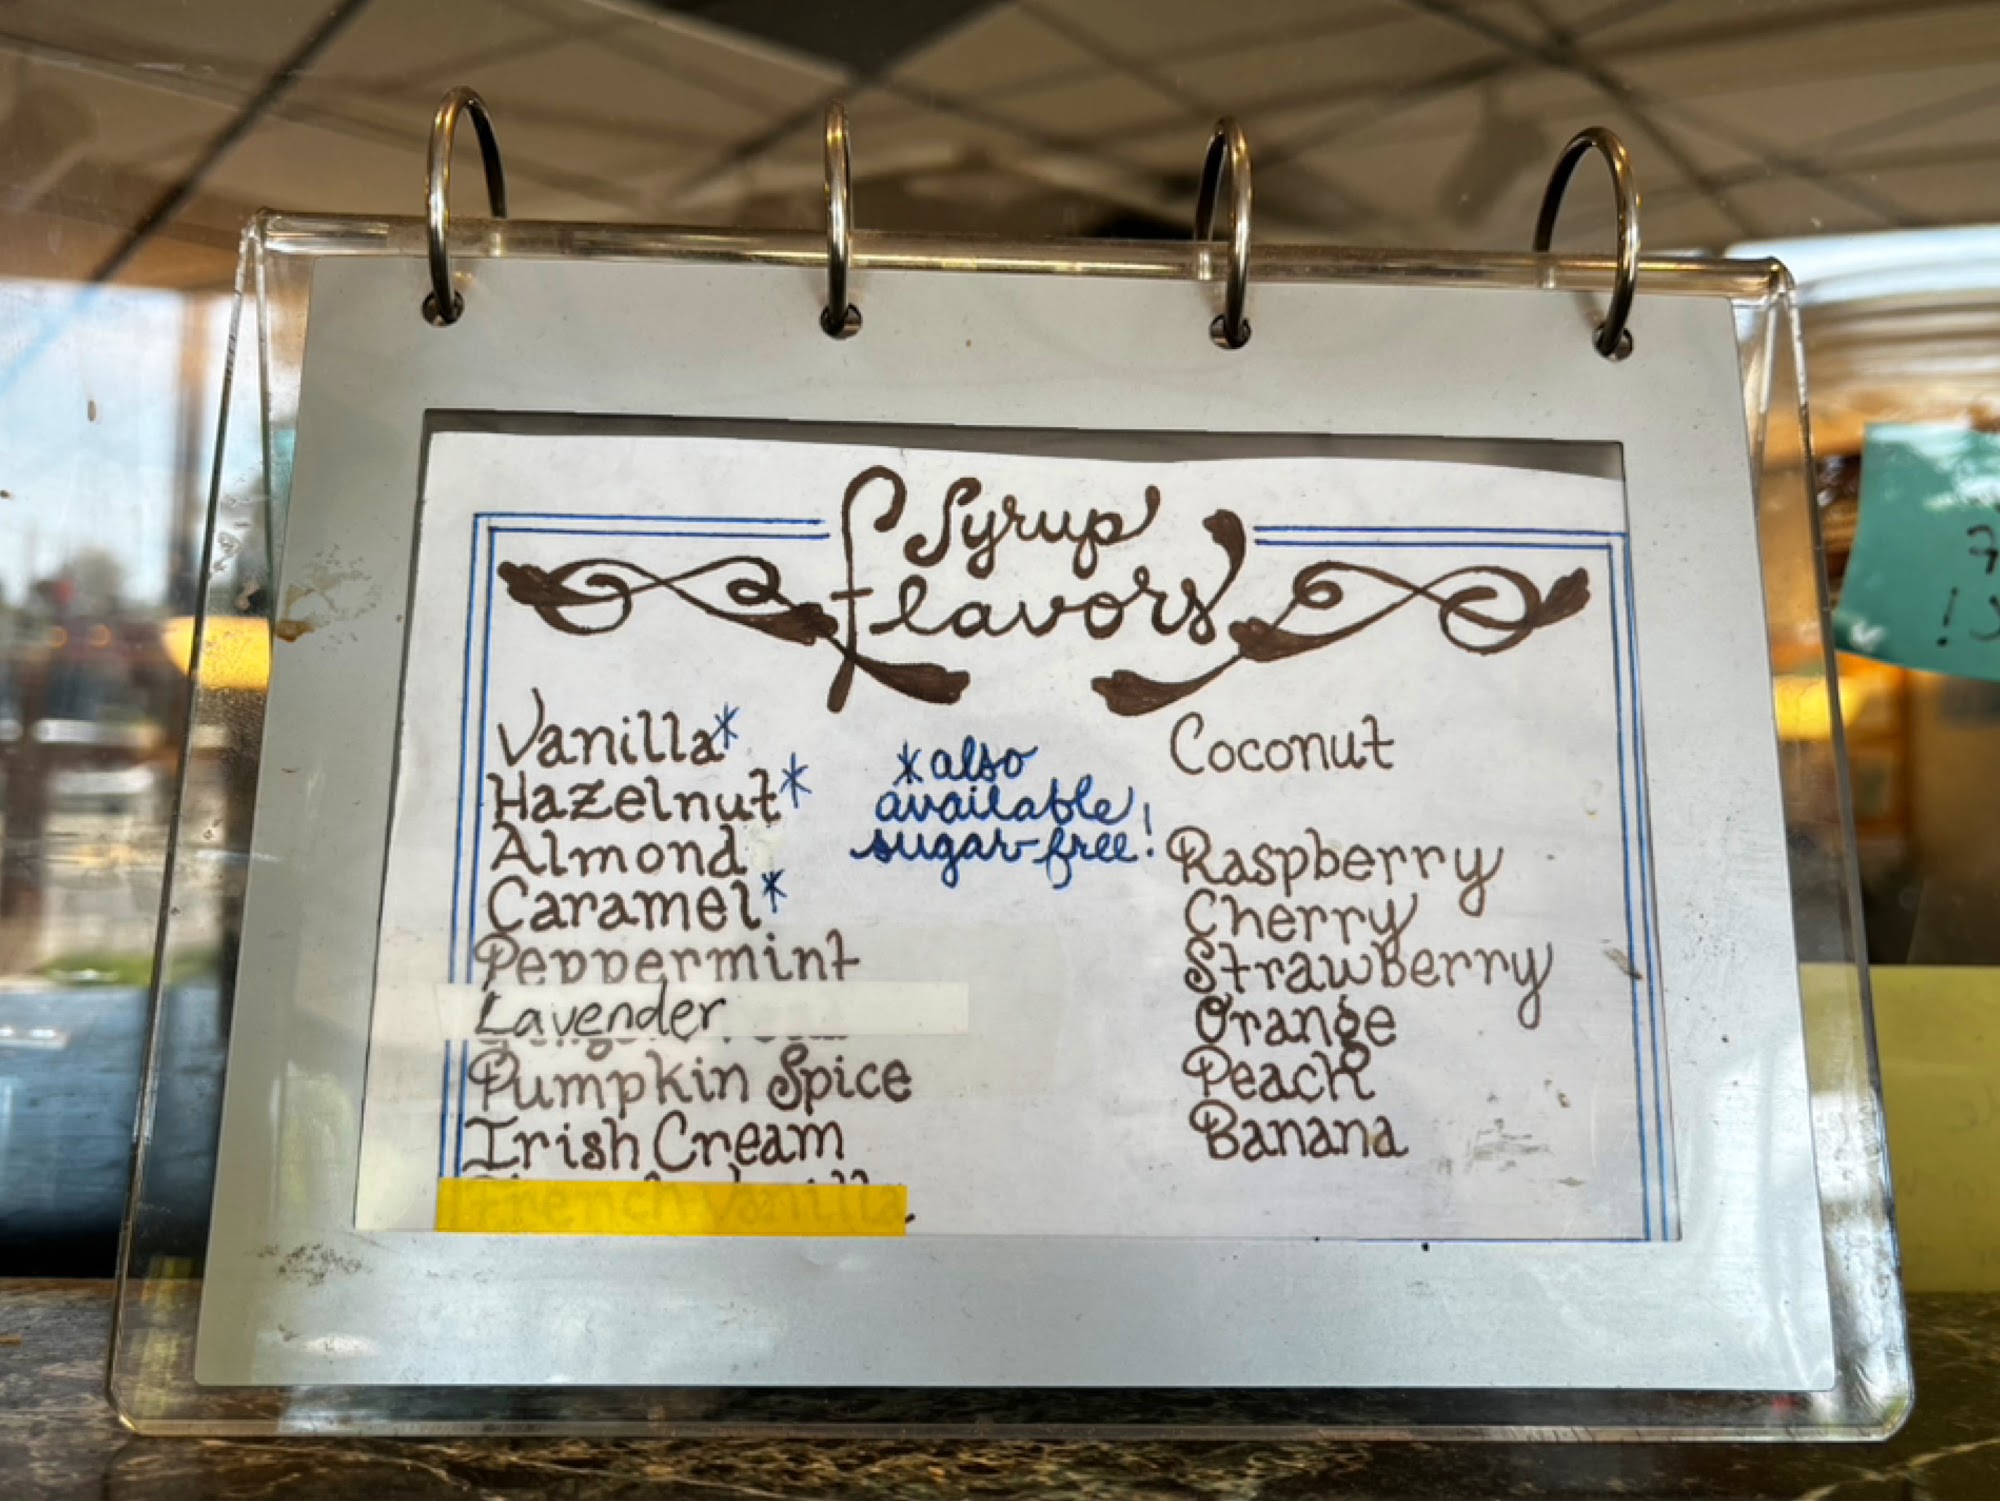 Syrup
flavors
Vanilla*
Hazelnut*
Almond
Caramel*
Peppermint
Lavender
Pumpkin Spice
Irish Cream
French Vanilla
*also
available
sugar-free!
Coconut
Raspberry
Cherry
Strawberry
Orange
Peach
Banana